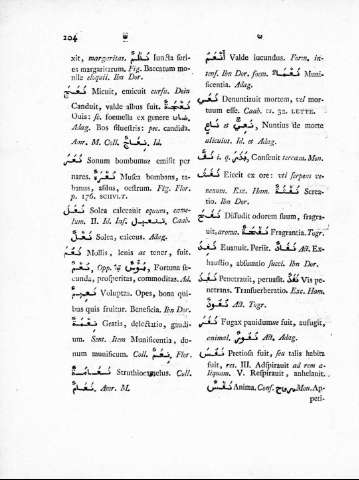 204
xit, margaritas. نَظْمٌ Iuncta seri-
es margaritarum. Fig. Baccatum mo-
nile eloquii. Ibn Dor.
نَعَجَ Micuit, emicuit cursu. Dein
Canduit, valde albus fuit. نَعْجَةٌ
Ouis: sc. foemella ex genere ضان
Adag. Bos silvestris: pec. candida.
Amr. M. Coll. نِعَاجٌ Id.
نَعَرَ Sonum bombumue emisit per
nares. نُعَرَةٌ Musca bombans, ta-
banus, asilus, oestrum. Fig. Flor.
p. 176. SCHVLT.
نَعَلَ Solea calceauit equum, came-
lum. II. Id. Inf. تنعيل Caab.
نَعْلٌ Solea, calceus. Adag.
نَعَمَ Mollis, lenis ac tener, fuit.
نُعْمٌ, Opp. τῷ بُوسٌ, Fortuna se-
cunda, prosperitas, commoditas. Ad.
نَعِيمٌ Voluptas. Opes, bona qui-
bus quis fruitur. Beneficia. Ibn Dor.
نِعْمَةٌ Gratis, delectatio, gaudi-
um. Sent. Item Munificentia, do-
num munificum. Coll. نِعَمٌ Flor.
نَعَامَةٌ Struthiocamelus. Coll.
نَعَامٌ Amr. M.
أَنْعَمُ Valde iucundus. Form. in-
tens. Ibn Dor. foem. نَعْمَاءُ Muni-
ficentia. Adag.
نَعَى Denuntiauit mortem, vel mor-
tuum esse. Caab. v. 32. LETTE.
نَعِيٌّ et نَاعٍ, Nuntius de morte
alicuius. Id. et Adag.
نَفَّ i. q. نَفَى, Censuit terram. Mon.
نَفَثَ Eiecit ex ore: vel serpens ve-
nenum. Exc. Ham. نَفْثَةٌ Screa-
tio. Ibn Dor.
نَفَحَ Diffudit odorem suum, fragra-
uit, aroma. نَفْحَةٌ Fragrantia. Togr.
نَفِدَ Euanuit. Periit. نَفَادٌ Act. Ex-
haustio, absumtio succi. Ibn Dor.
نَفَذَ Penetrauit, peruasit. نَفَذٌ Vis pe-
netrans. Transuerberatio. Exc. Ham.
نُفُوذٌ Act. Togr.
نَفَرَ Fugax pauidumue fuit, aufugit,
animal. نُفُورٌ Act. Adag.
نَفُسَ Pretiosa fuit, seu talis habita
fuit, res. III. Adspirauit ad rem a-
liquam. V. Respirauit, anhelauit.
نَفْسٌ Anima. Conf. Mon. Ap-
peti-